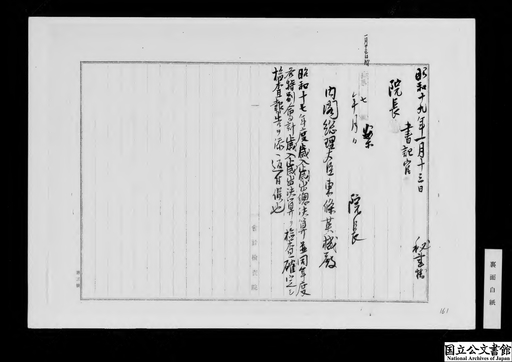 昭和十九年一月十三日
院長
書記官
秘書
案
年月日
院長
内閣総理大臣東條英機殿
昭和十七年度歳入歳出総決算並同年度
各特別会計歳入歳出決算ノ検査確定シ
検査報告ヲ添ヘ
会計検査院
161
裏面白紙
国立公文書館
National Archives of Japan